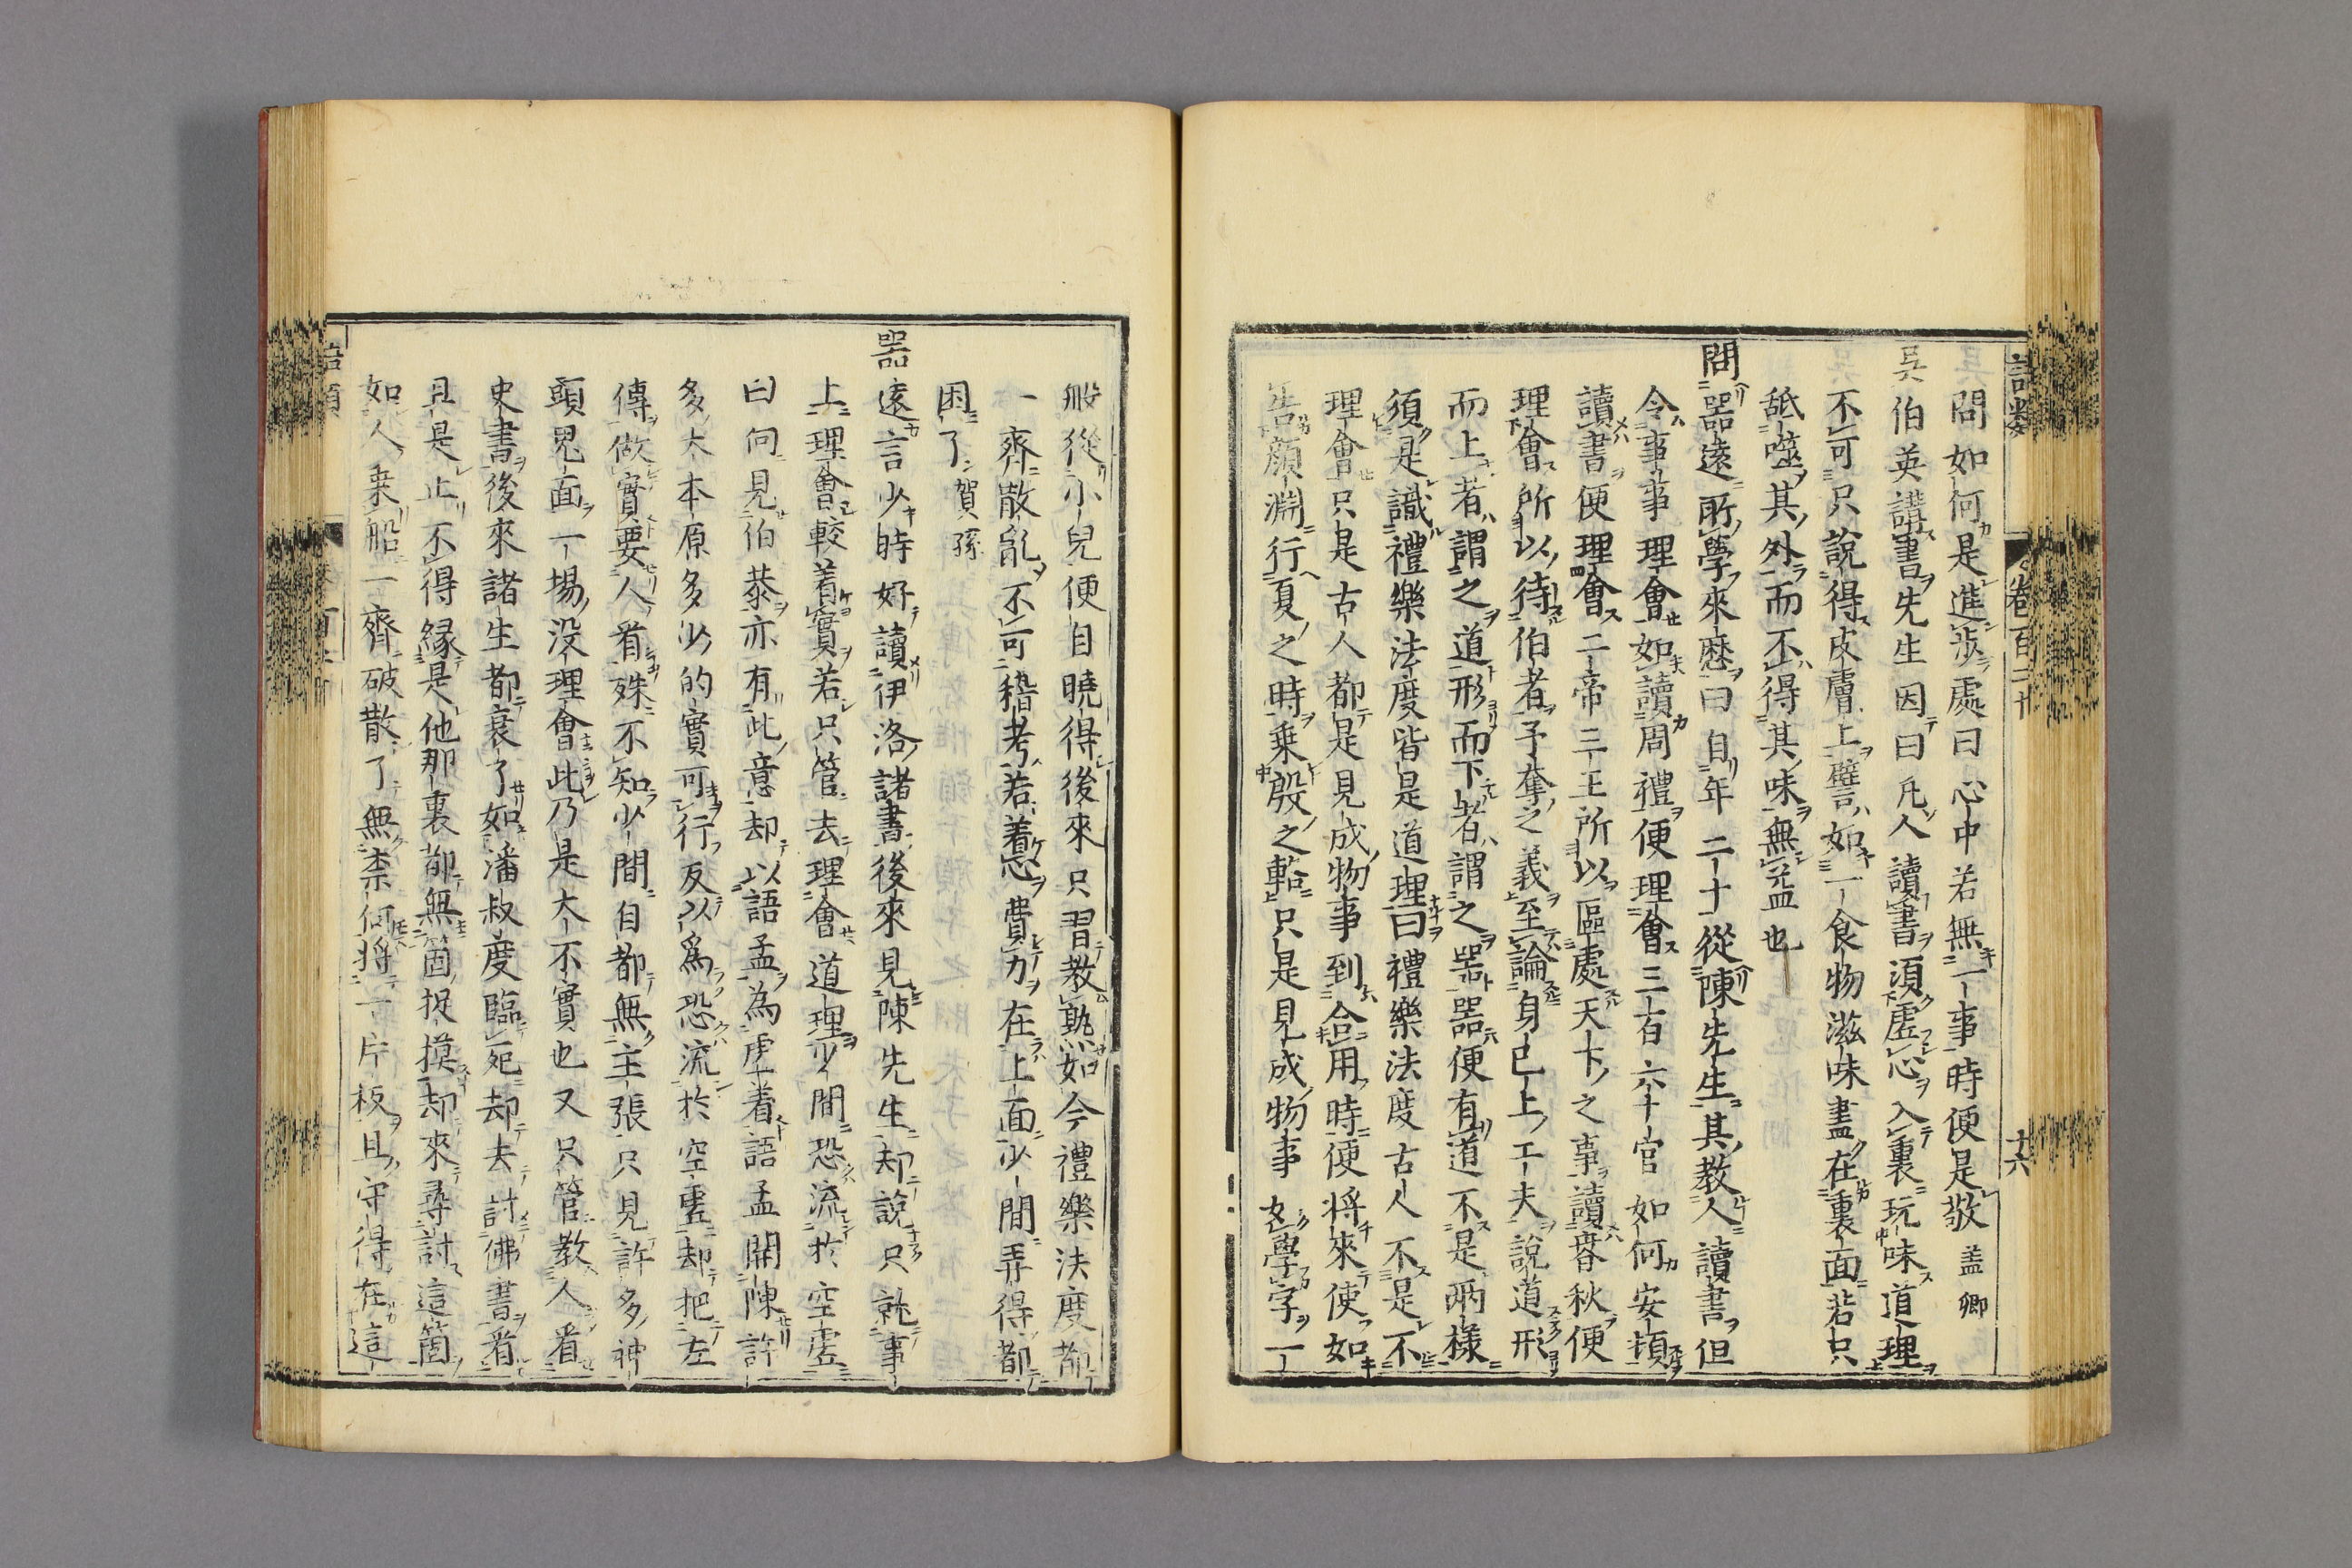 語類 卷百二十 十六
問如何是進步處曰心中若無一事時便是敬 蓋卿
吳伯英講書先生因曰凡人讀書須虛心入裏玩味道理
不可只說得皮膚上譬如一食物滋味盡在裏面若只
舐噬其外而不得其味無益也
問器遠所學來歷曰自年二十從陳先生其教人讀書但
令事事理會如讀周禮便理會三百六十官如何安頓
讀書便理會二帝三王所以區處天下之事讀春秋便
理會所以待伯者予奪之義至論身已上工夫說道形
而上者謂之道形而下者謂之器器便有道不是兩樣
須是識禮樂法度皆是道理曰禮樂法度古人不是不
理會只是古人都是見成物事到合用時便將來使如
告顏淵行夏之時乘殷之輅只是見成物事如學字一
般從小兒便自曉得後來只習教熟如今禮樂法度都
一齊散亂不可稽考若着心費力在上面少間弄得都
困了 賀孫
器遠言少時好讀伊洛諸書後來見陳先生却說只就事
上理會較着實若只管去理會道理少間恐流於空虛
曰向見伯恭亦有此意却以語孟為虛着語孟開陳許
多大本原多少的實可行反以爲恐流於空虛却把左
傳做實要人看殊不知少間自都無主張只見許多神
頭鬼面一場没理會此乃是大不實也又只管教人看
史書後來諸生都衰了如潘叔度臨死却去討佛書看
且是止不得緣是他那裏都無箇捉摸却來尋討這箇
如人乗船一齊破散了無柰何將一片板且守得在這